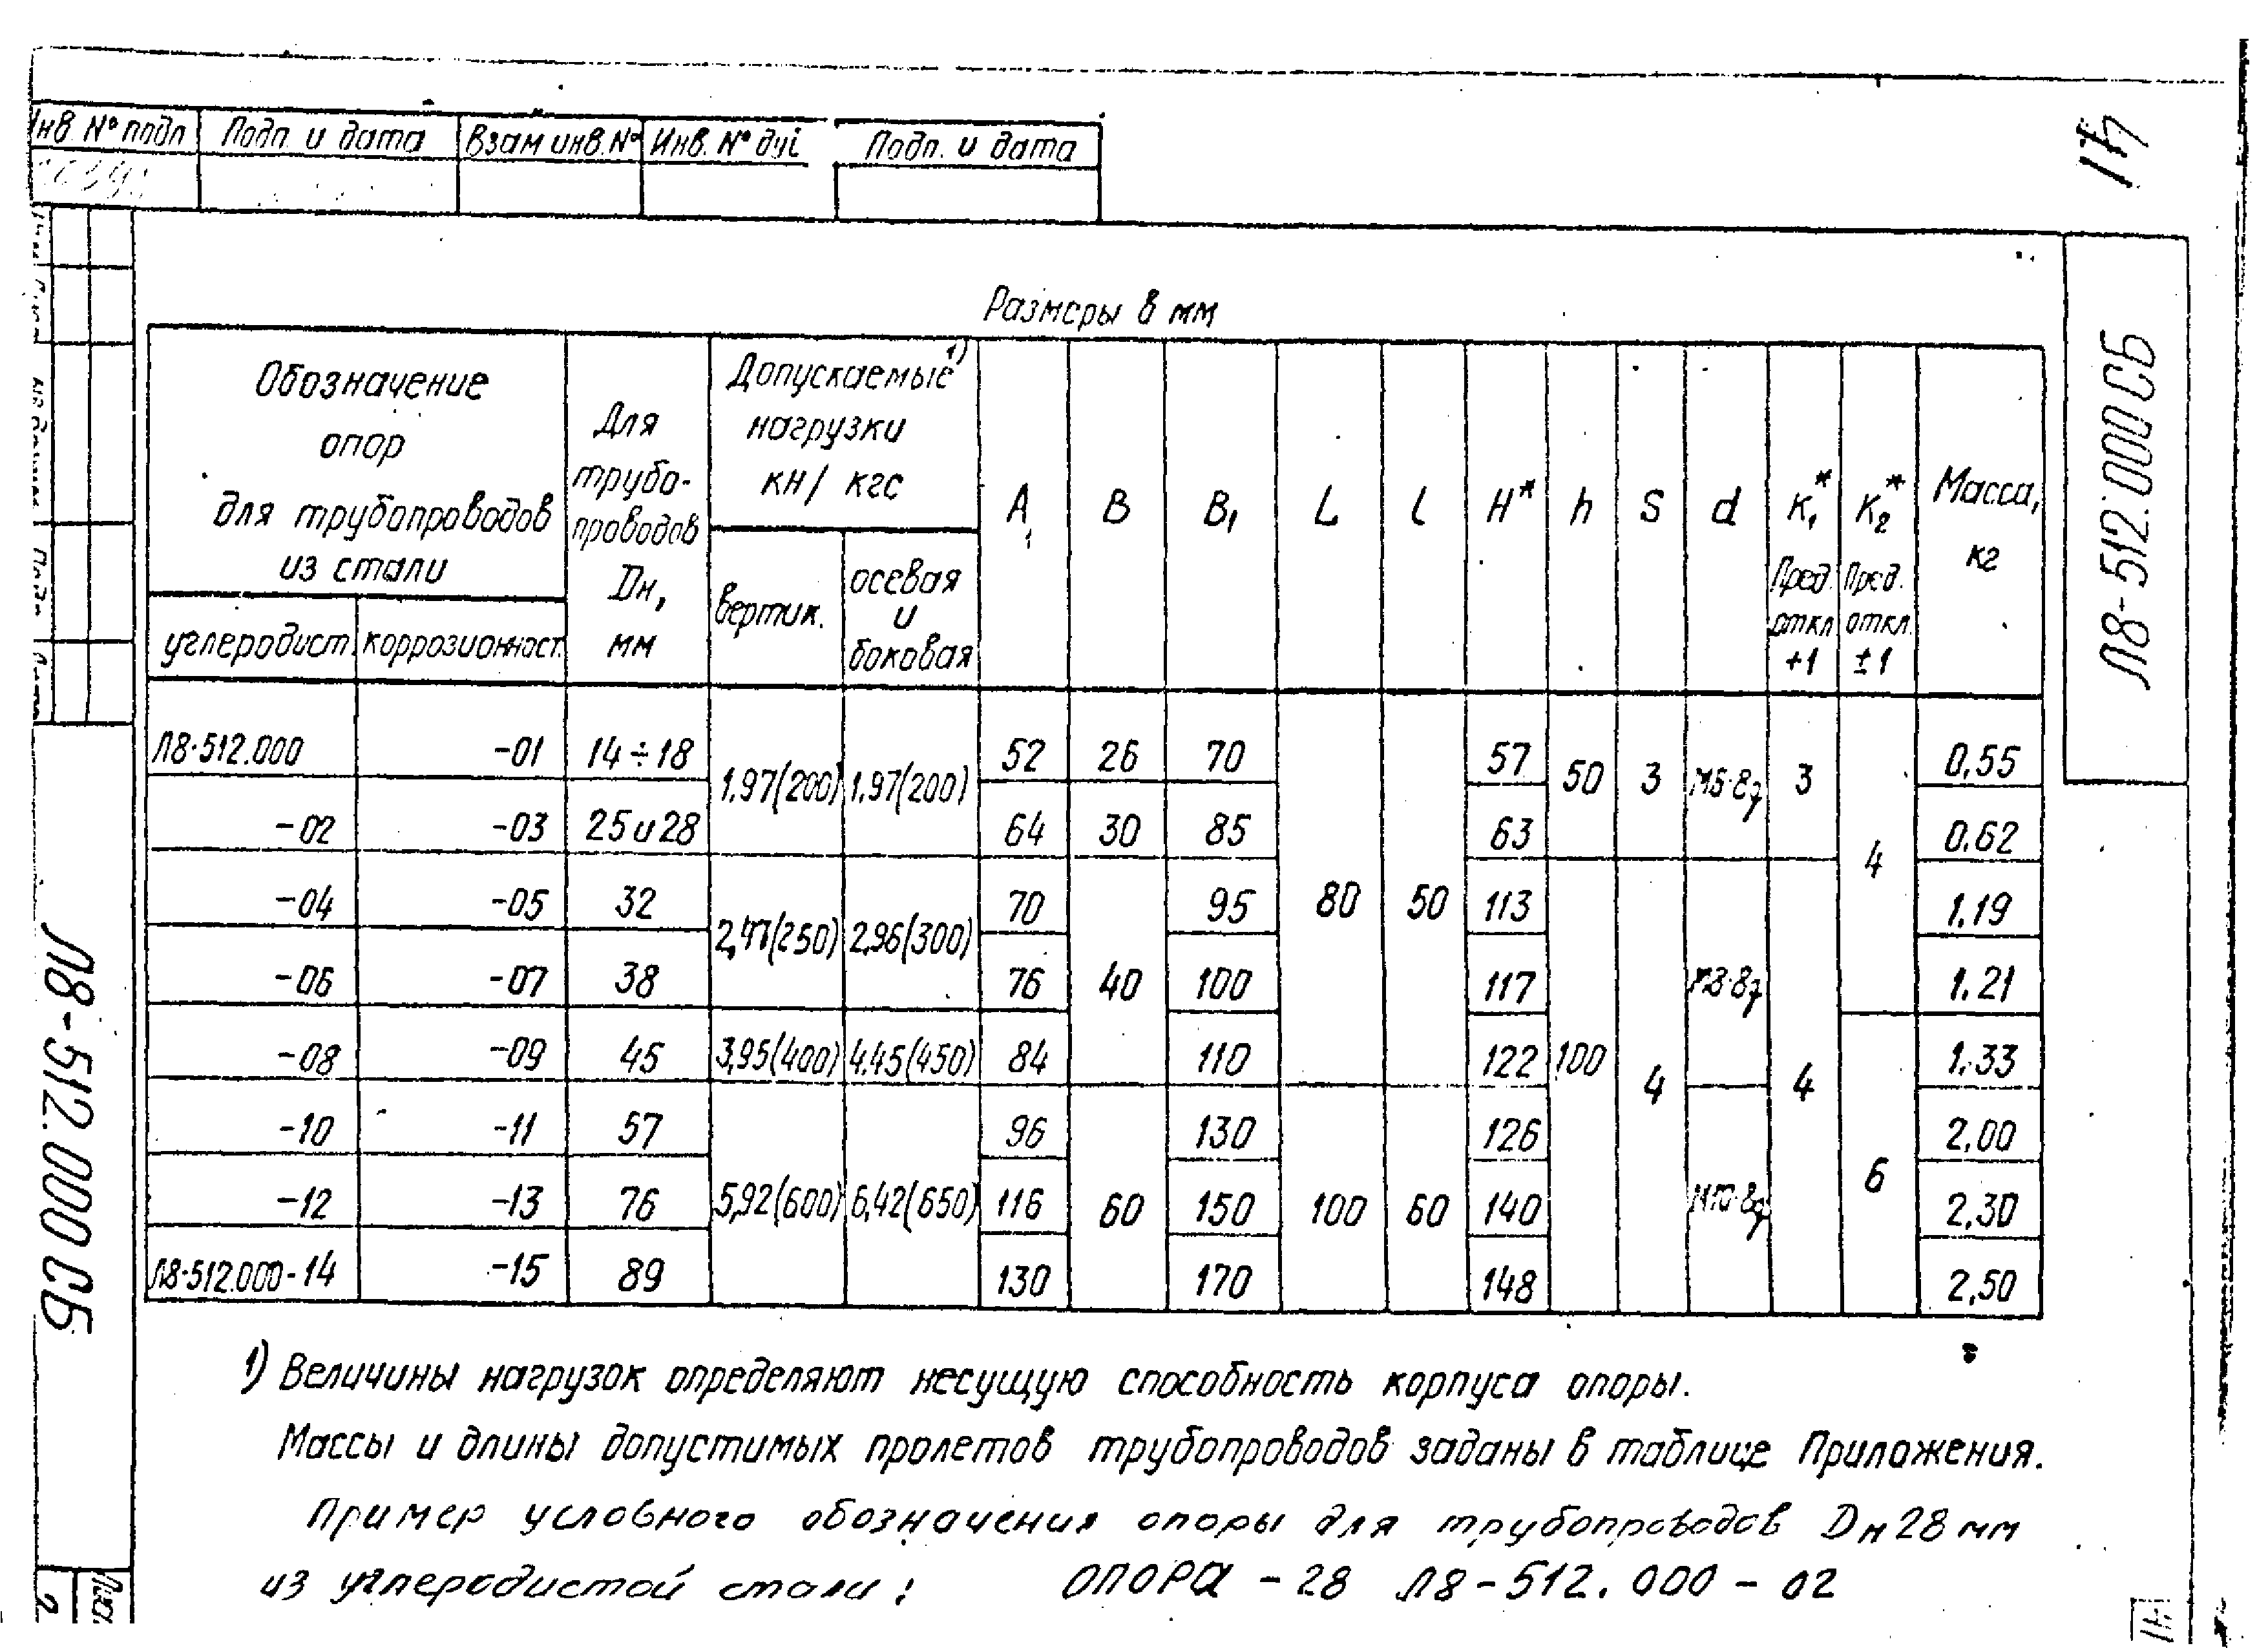 Инв. № подл Подп. и дата Взам инв. № Инв. № Подп. и дата
Л8-512.000 СБ
Размеры в мм
Обозначение опор для трубопроводов из стали
углеродист. коррозионност.
Для трубо-проводов Dн, мм
Допускаемые 1) нагрузки кн/ кгс
вертик. осевая и боковая
A B B1 L l H* h S d
K1* Пред. откл +1
K2* Пред. откл. ±1
Масса, кг
Л8-512.000 -01 14÷18 1,97(200) 1,97(200) 52 26 70 80 50 57 50 3 М6-8g 3 4 0,55
-02 -03 25 и 28 64 30 85 63 0.62
-04 -05 32 2,47(250) 2,96(300) 70 40 95 113 100 4 М8-8g 4 1,19
-06 -07 38 76 100 117 1.21
-08 -09 45 3,95(400) 4.45(450) 84 110 122 6 1,33
-10 -11 57 5,92(600) 6,42(650) 96 60 130 100 60 126 М10-8g 2,00
-12 -13 76 116 150 140 2,30
Л8-512.000-14 -15 89 130 170 148 2,50
1) Величины нагрузок определяют несущую способность корпуса опоры.
Массы и длины допустимых пролетов трубопроводов заданы в таблице Приложения.
Пример условного обозначения опоры для трубопроводов Dн 28 мм
из углеродистой стали: ОПОРА - 28 Л8-512.000-02
Л8-512.000 СБ
Лист
2